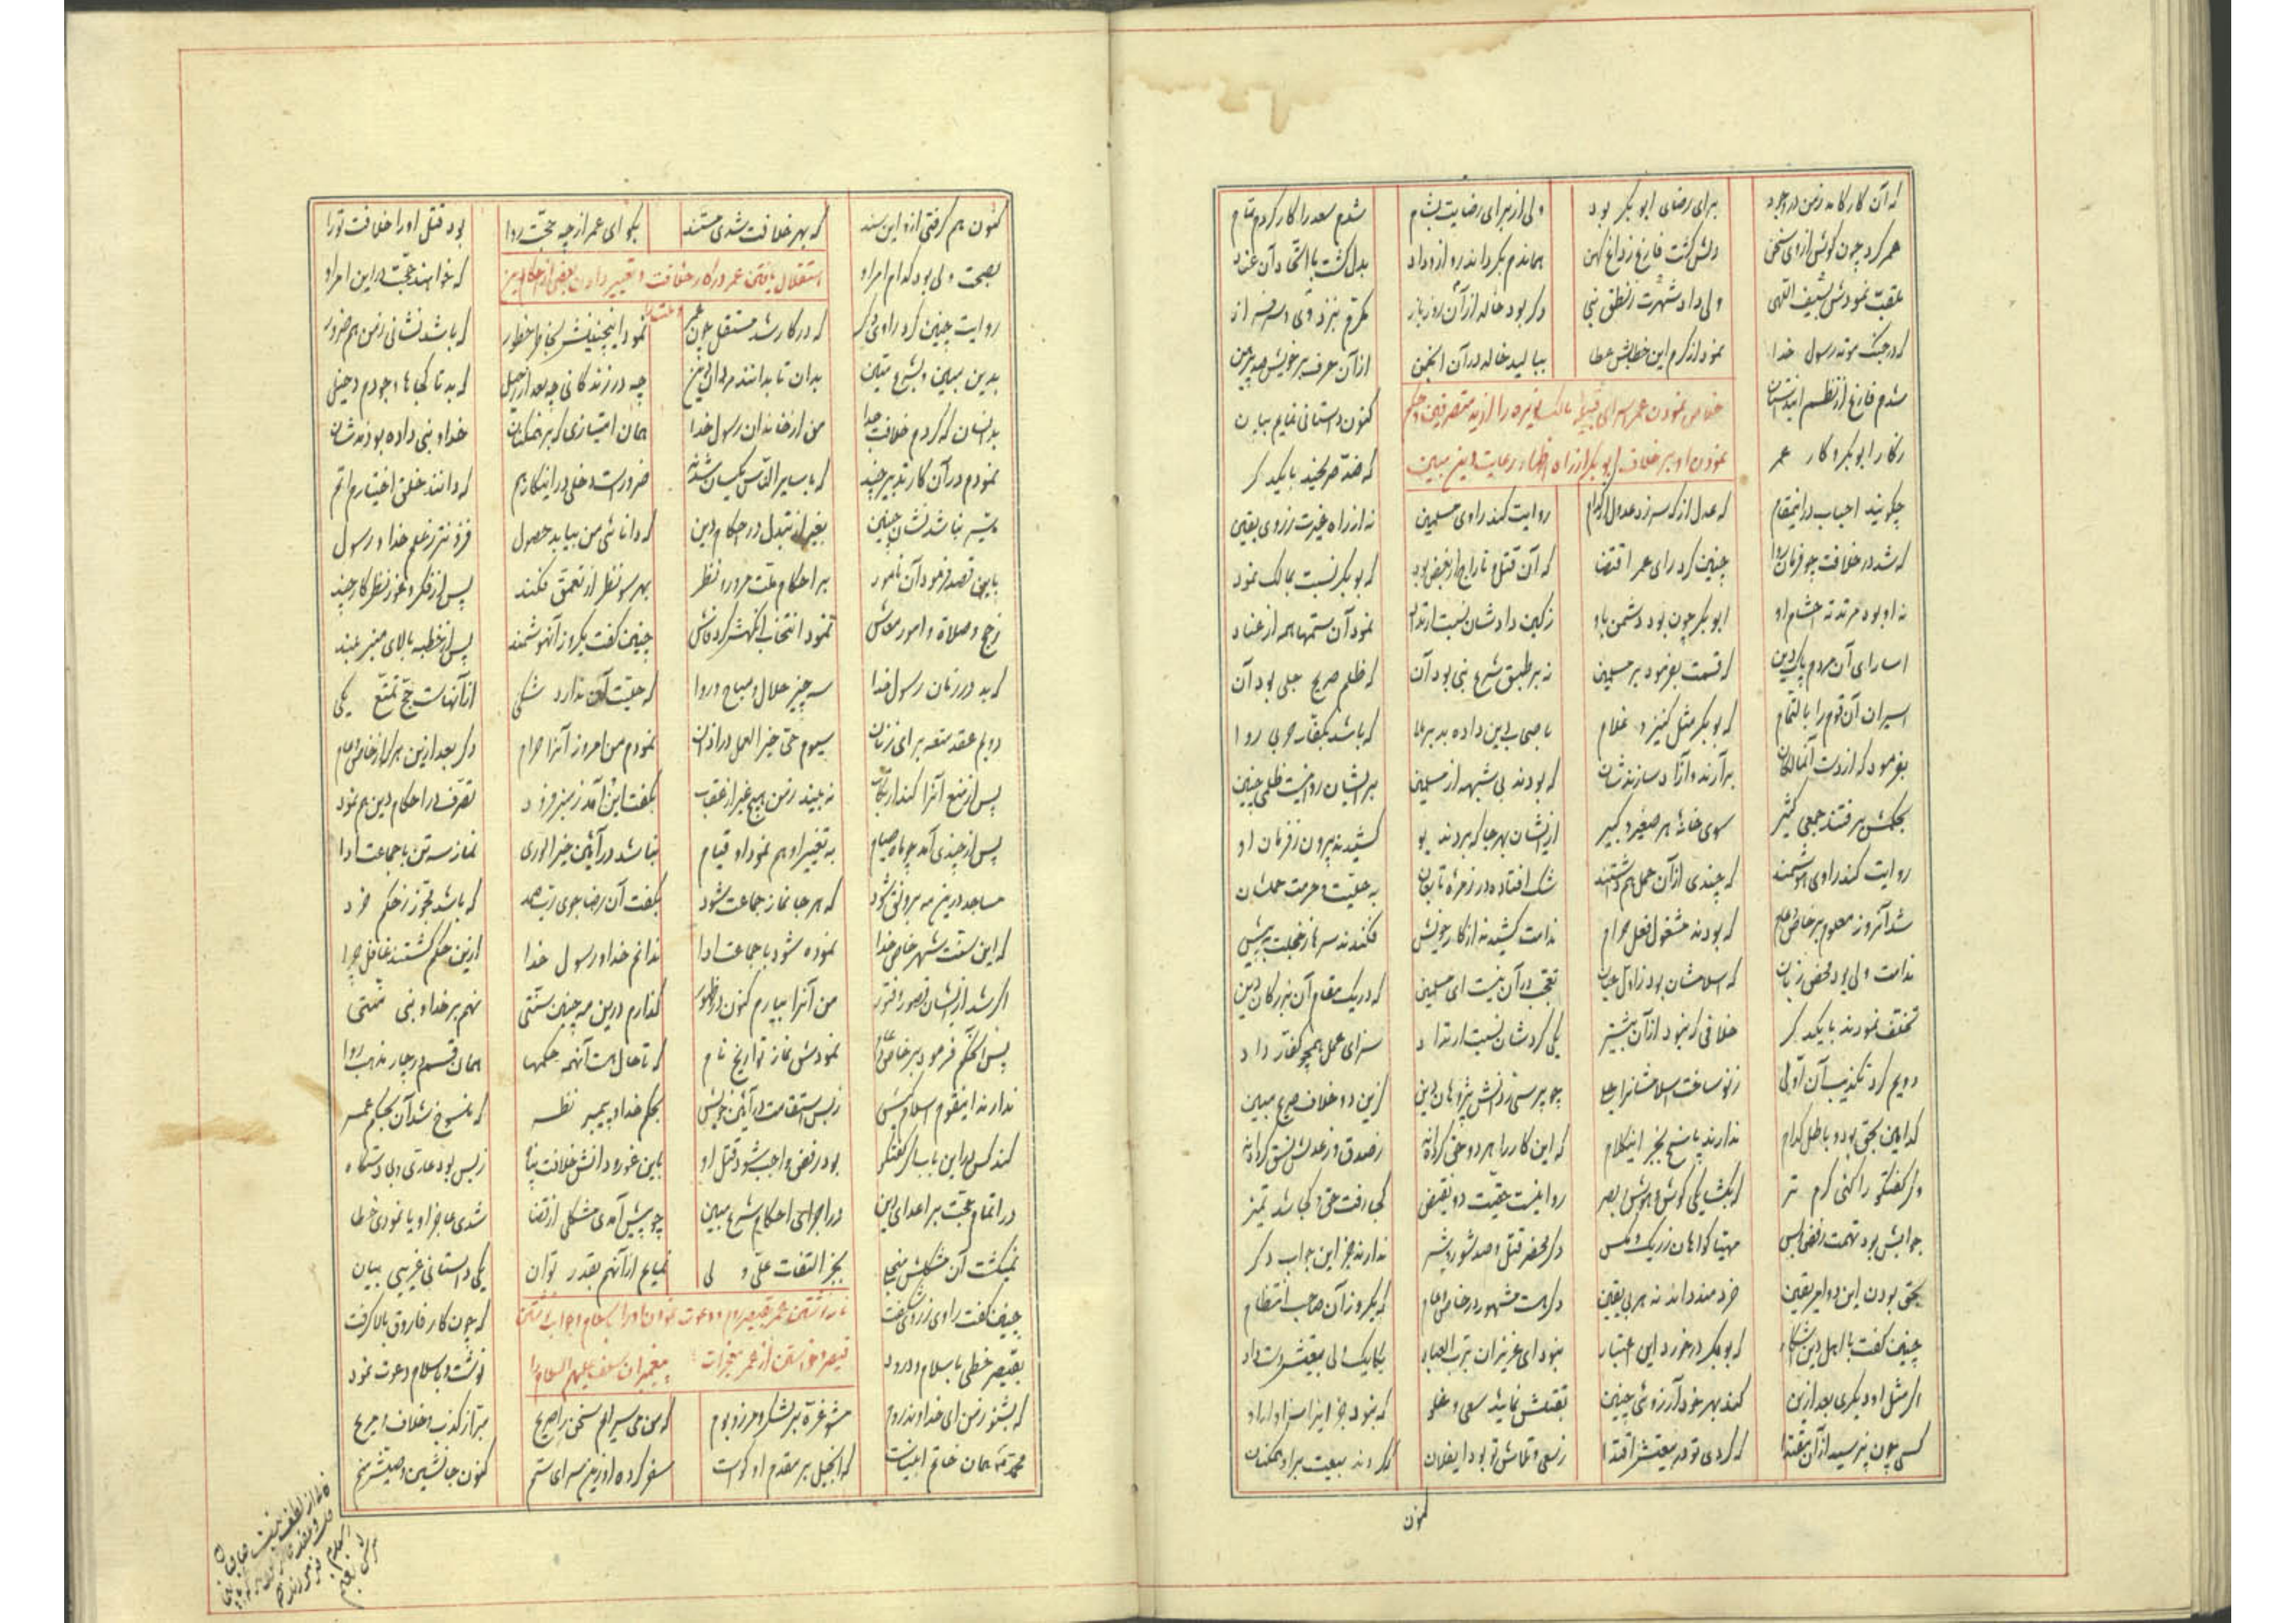 که آن کار کامد ز من در وجود برای رضای ابوبکر بود ولی از برای رضایت بشام شدم سعد را کار کردم تمام
عمر کرد چون گوش از وی سخن دلش گشت فارغ ز داغ کهن بدل گشت با اتحاد آن عناد
ملقب نمودش بسیف الهی ولی داد شهرت ز نطق نبی دگر بود خالد از آن روز باز
که در جنگ موته رسول خدا نمود از کرم این خطابش عطا ببالید خالد در آن انجمن از آن حرف بر خویش
شدم فارغ از نظم این داستان کنون داستانی نمایم بیان
خلاص نمودن عمر اسرای قبیله مالک نویره را از ید متصرفین و حکم
نمودن او بر خلاف ابوبکر از راه اظهار رعایت دین مبین
ز کار ابوبکر و کار عمر که ضد صریحند با یکدگر
چگویند احباب در اینمقام که عدل از که سر زد عدول از کدام روایت کند راوی مسلمین نه از راه غیرت ز روی یقین
که شد در خلافت چو فرمان روا چنین کرد رای عمر اقتضا که آن قتل و تاراج از بغض بود که بوبکر نسبت بمالک نمود
نه او بود مرتد نه احشام او ابوبکر چون بود دشمن باو ز کین دادشان نسبت ارتداد نمود آن ستمها همه از عناد
اسارای آن مردم پاک دین که قسمت بفرمود بر مسلمین نه بر طبق شرع نبی بود آن که ظلم صریح جلی بود آن
اسیران آن قوم را بالتمام که بوبکر مثل کنیز و غلام باصحاب دین داده بد برملا که باشد بکفار حربی روا
بفرمود که از دست آنمالکان برآرند و آزاد سازندشان که بودند بی شبهه از مسلمین بر ایشان روا نیست ظلمی چنین
بحکمش برفتند جمعی کثیر سوی خانهٔ هر صغیر و کبیر از ایشان بهر جا که بردند بو کشیدند بیرون ز فرمان او
روایت کند راوی هوشمند که چندی از آن حمل هم داشتند شک افتاده در زمرهٔ تابعان به حلیت و حرمت حملشان
شد آنروز معلوم بر خاص و عام که بودند مشغول فعل حرام ندامت کشیدند از کار خویش فکندند سرها ز خجلت به پیش
ندامت ولی بود محض زبان که اسلامشان بود ز اول عیان تعجب در آن نیست ای مسلمین که در یک مقام آن بزرگان دین
تخلف نمودند با یکدگر خلافی که نبود از آن بیشتر یکی کردشان نسبت ارتداد سزای عمل همچو کفار داد
دویم کرد تکذیب آن اولی ز نو ساخت اسلامشان را جلی چو پرسی ز دانش پژوهان دین کزین دو خلاف صریح مبین
کدامین بحق بود و باطل کدام ندارند پاسخ بجز اینکلام که این کار را هر دو حق کرده اند ز صدق و ز عدلش نسق کرده اند
وگر گفتگو را کنی گرم تر که بگشا یکی گوش و هوش و بصر روا نیست حقیت دو نقیض کجا رفت حق و کجا شد تمیز
جوابش بود تهمت رفض و بس مهیا گواهان ز زیک و مکس ندارند جز این جواب دگر
بحق بودن این دو امر یقین خردمند داند نه هر بی یقین دگر هست مشهور در خاص و عام که یکروز آن صاحب انتظام
چنین گفت با اهل دین آشکار که بوبکر در خورد این اعتبار نبود ای عزیزان برب العباد
اگر مثل او دیگری بعد ازین کند بهر خود آرزوئی چنین بقتلش نمائید سعی و غلو که نبود جز این سزاوار او
کسی چون نپرسید از آن مقتدا که کردی تو در بیعتش اقتدا ز سعی و تلاش تو بود ای فلان که کردند بیعت بر او همگنان
کنون
کنون هم گرفتی ازو این سند که بهر خلافت شدی مستند بگو ای عمر از چه حجت روا بود قتل او را خلافت تو را
بصحت ولی بود کدام امر او که خواهند حجت در این امر ازو
استقلال یافتن عمر در کار خلافت و تغییر دادن بعضی از احکام دین
روایت چنین کرد راوی دگر که در کار شد مستقل چون عمر نمود اینچنینش بخاطر خطور که باشد نشانی ز من هم ضرور
بدین مبین و بشرع متین بدان تا بدانند مردان دین چه در زندگانی چه بعد از اجل که بد تا کجاها وجودم دخیل
بدانسان که کردم خلافت جدا من از خاندان رسول خدا همان امتیازی که بر همگنان خدا و نبی داده بودندشان
نمودم در آن کار تدبیر چند ضرور است دخلی در اینکار هم که دانند خلق اختیارم اتم
میسر نباشد نشان چنین بغیر از تبدل در احکام دین که دانائی من بیابد حصول فزونتر ز علم خدا و رسول
باین قصد فرمود آن نامور بر احکام ملت مرورا نظر بهر سو نظر از تعمق فکند پس از فکر و غور نظر کار چند
ز حج و صلاة و امور معاش نمود انتخاب آنگهش کرد فاش چنین گفت یکروز آن هوشمند پس از خطبه بالای منبر بلند
که بد در زمان رسول خدا سه چیز حلال و مباح و روا که حلیت آن ندارد شکی از آنهاست حج تمتع یکی
دویم عقد متعه برای زنان سیوم حی خیر العمل در اذان نمودم من امروز آنرا حرام دگر بعد ازین هر که از خاص و عام
پس از منع آنرا کند ارتکاب نه بیند ز من هیچ غیر از عقاب بگفت این و آمد ز منبر فرود تصرف در احکام دین هم نمود
پس از چندی آمد چو ماه صیام به تغییر او هم نمود او قیام نباشد در آئین خیر الوری نماز سنن با جماعت ادا
مساجد درین مه پر رونق شود که هر جا نماز جماعت شود بگفت آن رضا جوی که باشد مجوز ز حکم خرد
که این سنت شهر خاص خدا نموده شود با جماعت ادا ندانم خدا و رسول خدا ازین حکم گشتند غافل چرا
اگر شد از ایشان قصور و فتور من آنرا بیارم کنون در ظهور گذارم درین مه چنین سنتی نهم بر خدا و نبی منتی
پس آنحکم فرمود بر خاص و عام نمودش نماز تراویح نام که تا حال هست آنهمه حکمها همان قسم در چار مذهب روا
ندارند اینقوم اسلام کیش ز بس استقامت در آئین خویش بحکم خدا و پیمبر نظر که منسوخ شد آن بحکم عمر
کند کس درین باب اگر گفتگو بود رفض و واجب شود قتل او باین غور و دانش خلافت پناه ز بس بود عاری و بی دستگاه
در اتمام حجت بر اعدای دین در اجرای احکام شرع مبین چو پیش آمدی مشکلی از قضا شدی عاجز او یا نمودی خطا
نمیگشت آن مشکلش منجلی بجز التفات علی ولی نمایم از آنهم بقدر توان یکی داستانی غریبی بیان
نامه نوشتن عمر بقیصر روم و دعوت نمودن او را باسلام و جواب نوشتن
قیصر و خواستن از عمر معجزات پیغمبران سلف علیهم السلام را
چنین گفت راوی ز روی شگفت که چون کار فاروق بالا گرفت
بقیصر خطی با سلام و درود نوشت و باسلام دعوت نمود
که بشنو ز من ای خداوند روم مشو غره بر لشکر و مرز و بوم مبرا ز کذب و خلاف و مزیح
محمد که همان خاتم انبیاست که انجیل بر مقدم او گواست سفر کرده او زین سرای ستم کنون جانشین و وصیش منم